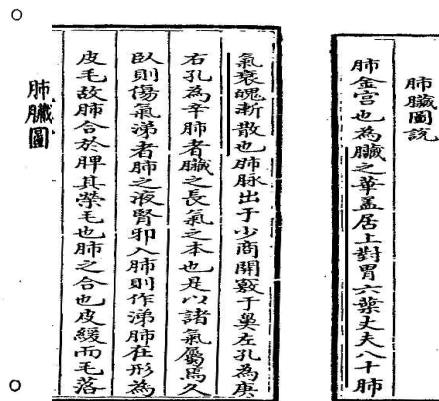 肺臟圖説
肺金宫也為臟之華盖居上對胃六葉丈夫八十肺
氣衰魄漸散也肺脉出于少商開竅于鼻左孔為庚
右孔為辛肺者臟之長氣之本也是以諸氣屬焉久
臥則傷氣涕者肺之液腎邪入肺則作涕肺在形為
皮毛故肺合於脾其榮毛也肺之合也皮緩而毛落
肺臟圖